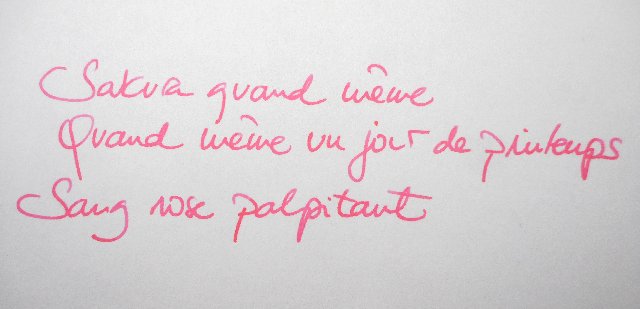 Sakura quand même
Quand même un jour de printemps
Sang rose palpitant